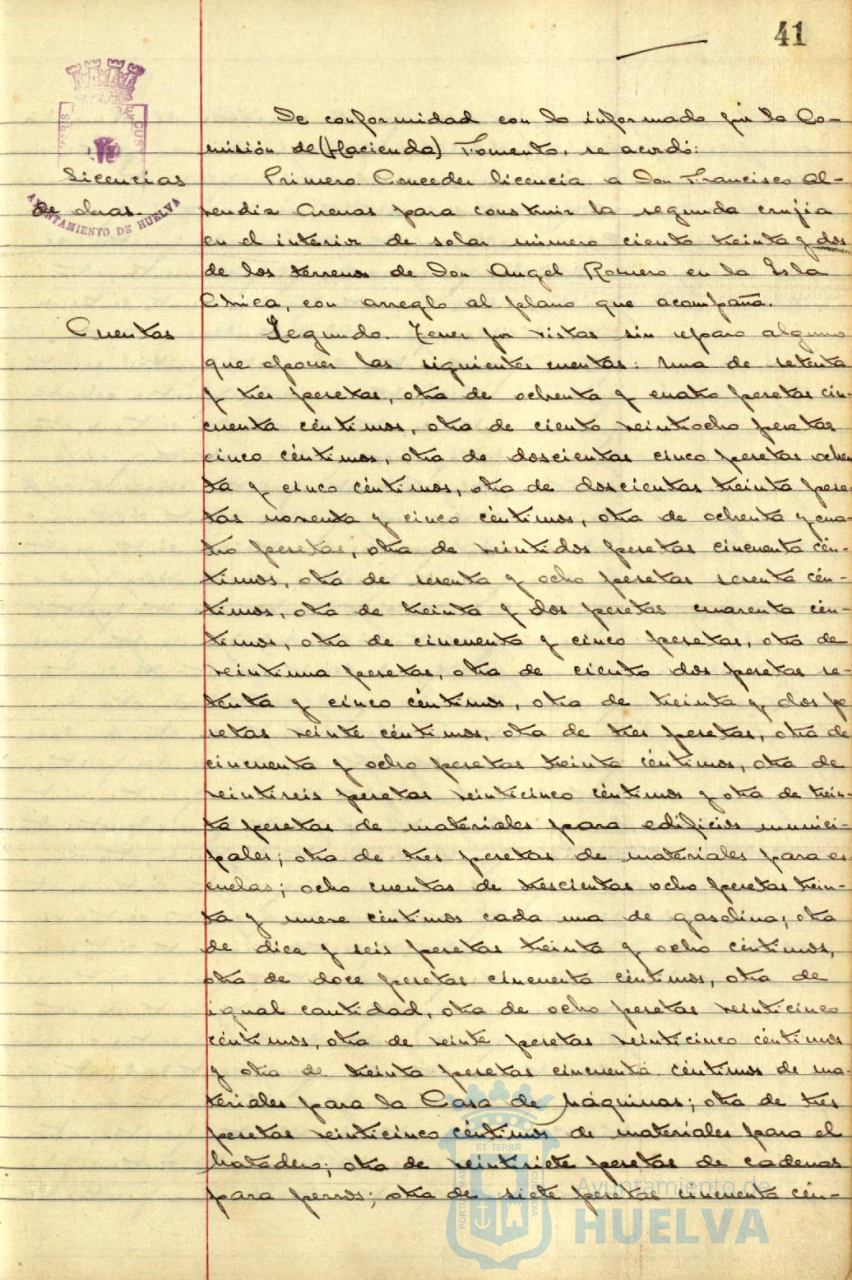 41
De conformidad con lo informado por la Co-
misión de (Hacienda) Fomento, se acordó:
Licencias
de obras.
AYUNTAMIENTO DE HUELVA
Primero. Conceder licencia a Don Francisco
Arenas para construir la segunda crujía
en el interior de solar número ciento treinta y dos
de los terrenos de Don Angel Romero en la Isla
Chica, con arreglo al plano que acompaña.
Cuentas
Segundo. Tener por vistas sin reparo alguno
que oponer las siguientes cuentas: una de setenta
y tres pesetas, otra de ochenta y cuatro pesetas cin-
cuenta céntimos, otra de ciento veintiocho pesetas
cinco céntimos, otra de doscientas cinco pesetas ochen
ta y cinco céntimos, otra de doscientas treinta pese-
tas noventa y cinco céntimos, otra de ochenta y cua-
tro pesetas, otra de veintidos pesetas cincuenta cén-
timos, otra de sesenta y ocho pesetas sesenta cén-
timos, otra de treinta y dos pesetas cuarenta cén-
timos, otra de cincuenta y cinco pesetas, otra de
veintiuna pesetas, otra de ciento dos pesetas se-
tenta y cinco céntimos, otra de treinta y dos pe
setas veinte céntimos, otra de tres pesetas, otra de
cincuenta y ocho pesetas treinta céntimos, otra de
veintiseis pesetas veinticinco céntimos y otra de trein-
ta pesetas de materiales para edificios munici-
pales; otra de tres pesetas de materiales para es
cuelas; ocho cuentas de trescientas ocho pesetas trein-
ta y nueve céntimos cada una de gasolina; otra
de diez y seis pesetas treinta y ocho céntimos,
otra de doce pesetas cincuenta céntimos, otra de
igual cantidad, otra de ocho pesetas veinticinco
céntimos, otra de veinte pesetas veinticinco céntimos
y otra de treinta pesetas cincuenta céntimos de ma-
teriales para la Casa de Máquinas; otra de tres
pesetas veinticinco céntimos de materiales para el
Matadero; otra de veintisiete pesetas de cadenas
para perros; otra de siete pesetas cincuenta cén-
Ayuntamiento de
HUELVA